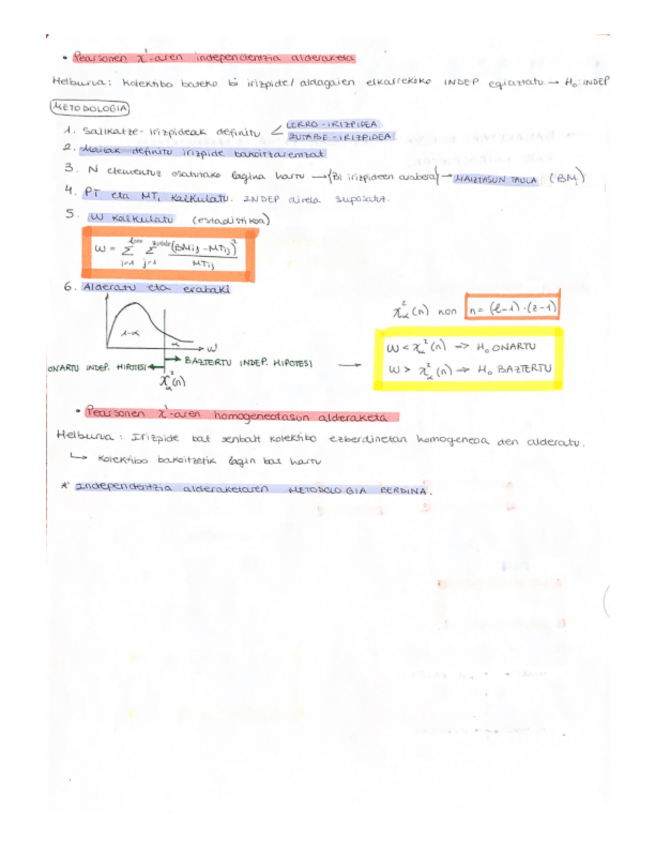 • Pearsonen χ²-aren independentzia alderaketa
Helburua: kolektibo bateko bi irizpide/aldagaien elkarrekiko INDEP egiaztatu → H₀: INDEP
METODOLOGIA
1. Sailkatze-irizpideak definitu < LERRO-IRIZPIDEA
ZUTABE-IRIZPIDEA
2. Mailak definitu irizpide bakoitzarentzat
3. N elementuz osaturako lagina hartu → (Bi irizpideen arabera) → MAIZTASUN TAULA (BM)
4. PT eta MT, kalkulatu. INDEP direla suposatuz.
5. W kalkulatu (estadistikoa)
W = Σ Σ (BMij - MTij)² / MTij
i=1 j=1
6. Alderatu eta erabaki
χ²α(n) non n = (l-1)·(z-1)
1-α α W
W < χ²α(n) => H₀ ONARTU
BAZTERTU INDEP. HIPOTESI →
ONARTU INDEP. HIPOTESI
W > χ²α(n) => H₀ BAZTERTU
χ²α(n)
• Pearsonen χ²-aren homogeneotasun alderaketa
Helburua: Irizpide bat zenbait kolektibo ezberdinetan homogeneoa den alderatu.
↳ Kolektibo bakoitzetik lagin bat hartu
* Independentzia alderaketaren METODOLOGIA BERDINA.